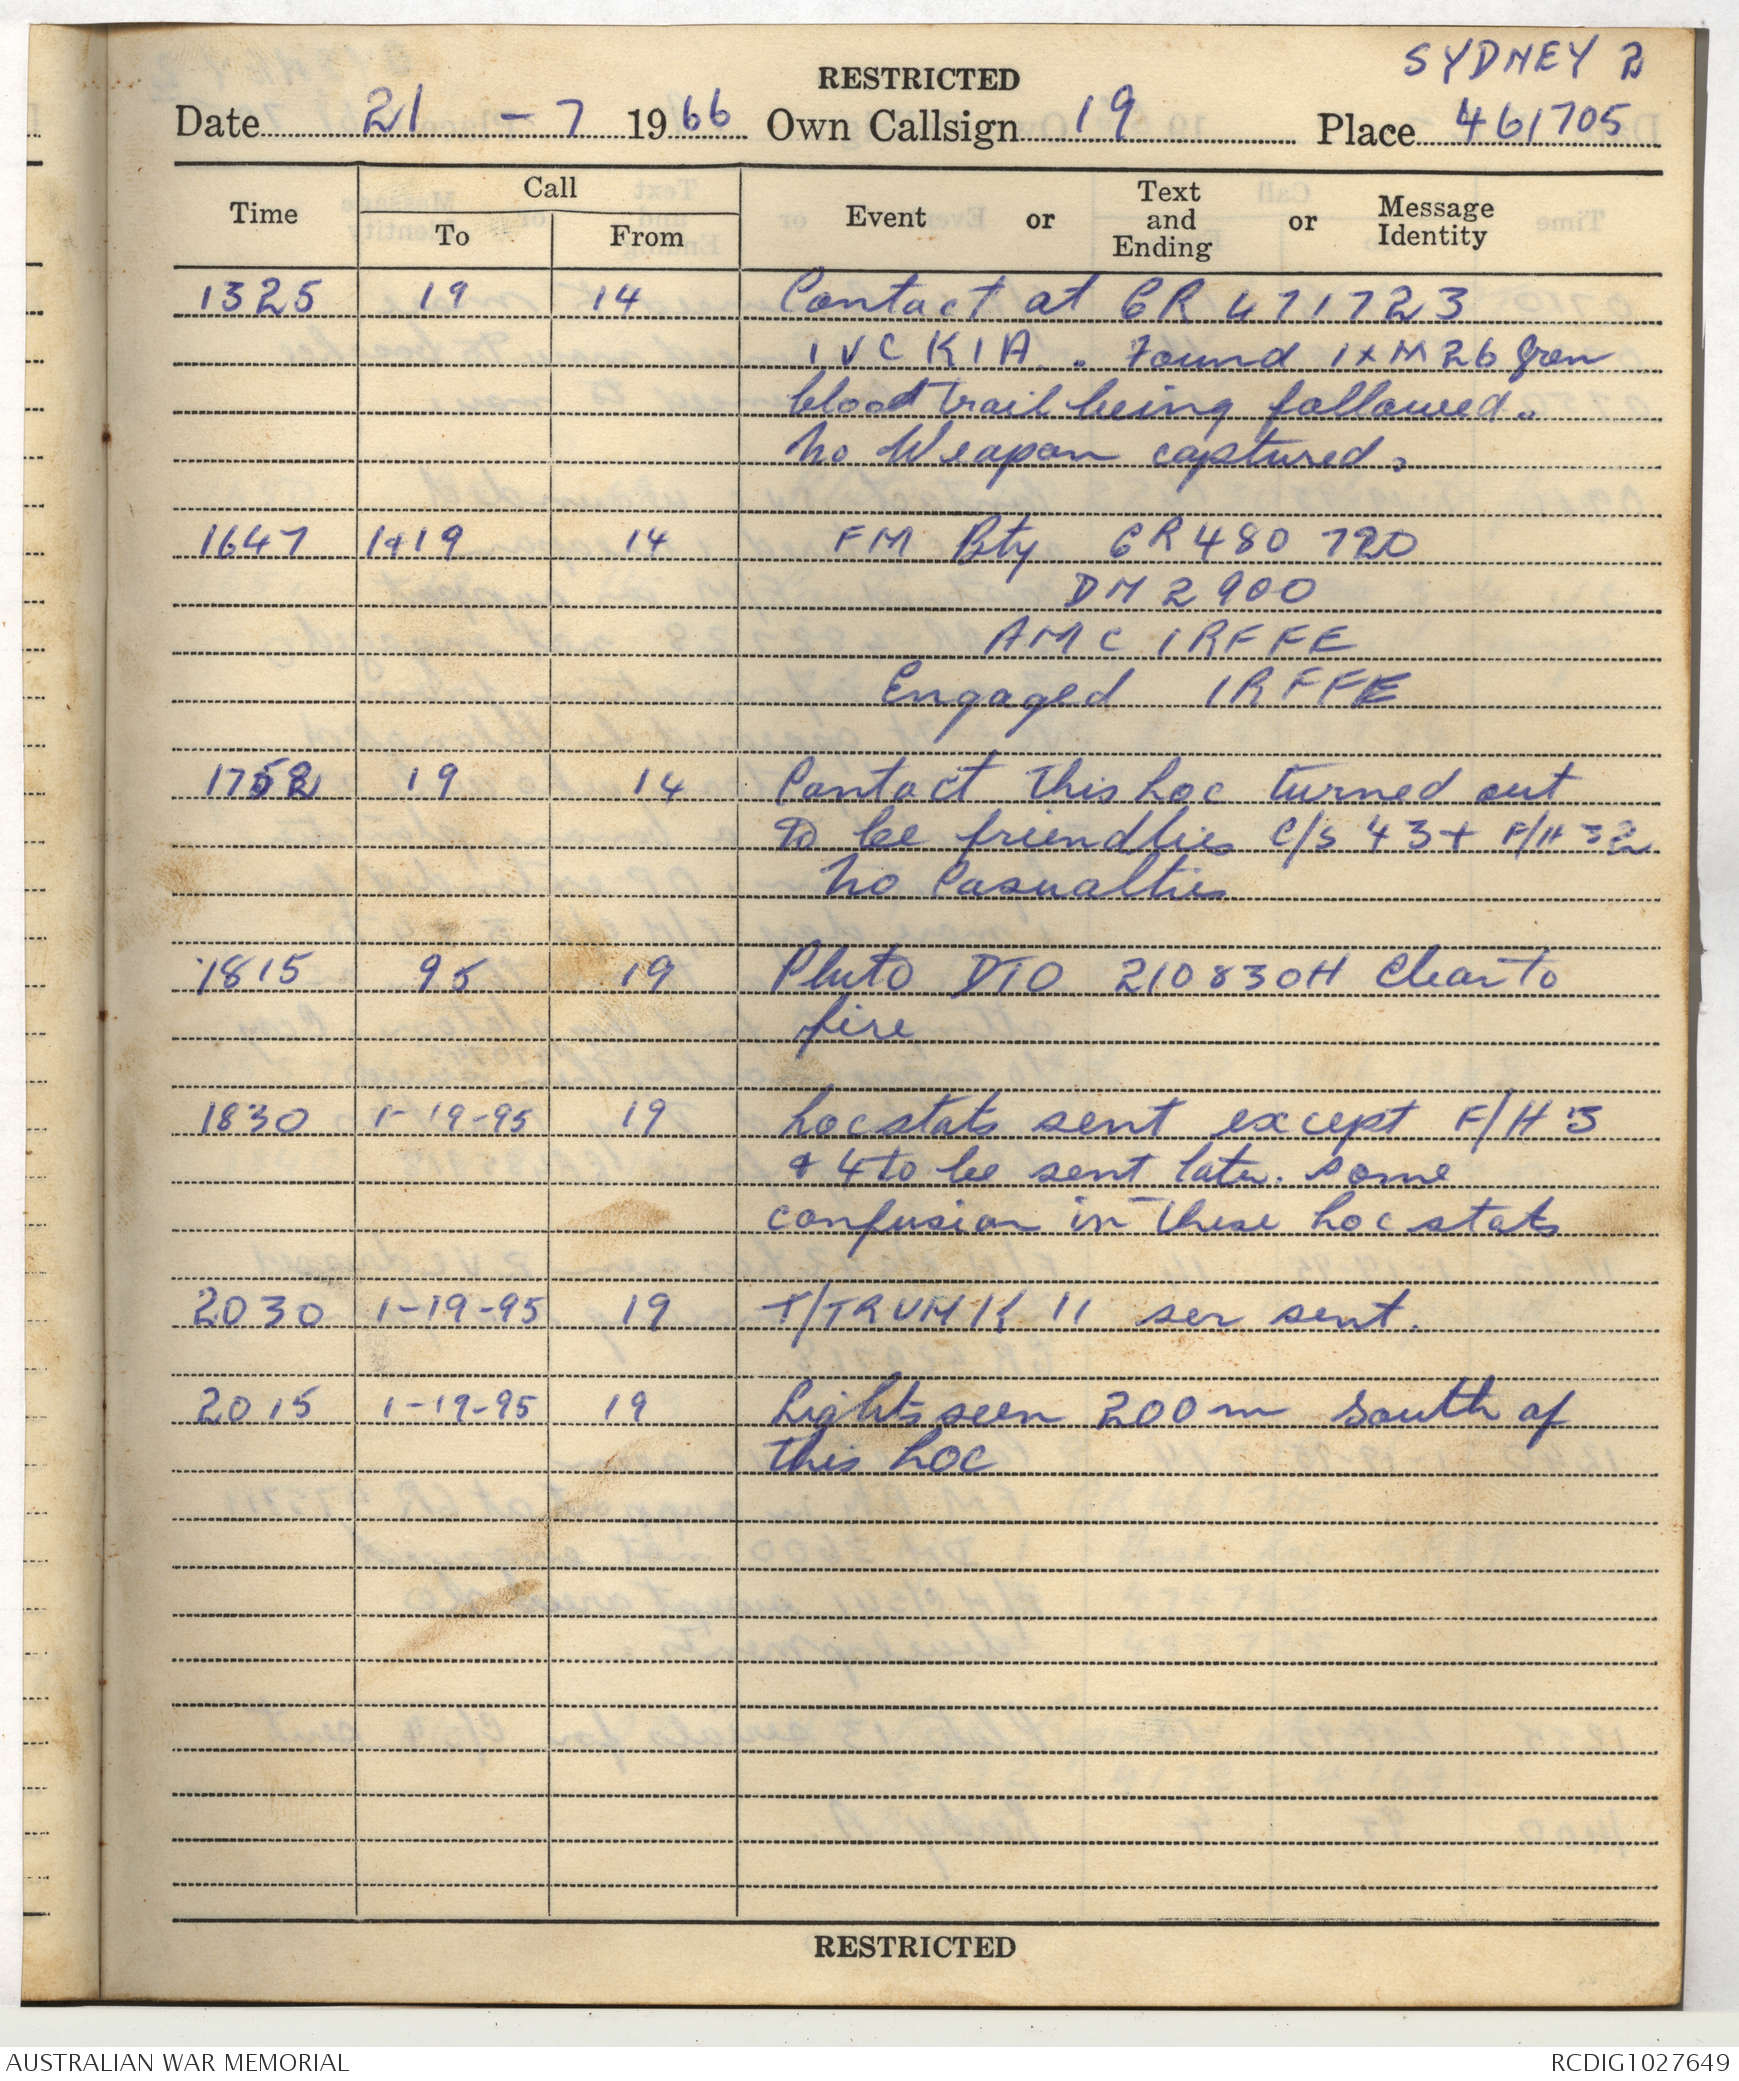 SYDNEY 2
RESTRICTED
Date 21 - 7 1966 Own Callsign 19 Place 461705
Time Call To From Event or Text and Ending or Message Identity
1325 19 14 Contact at GR 471723
1 VC KIA. Found 1 x M26 Gren
blood trail being followed.
No Weapon captured.
1647 1+19 14 FM Bty GR 480 720
DM 2900
AMC 1RFFE
Engaged 1RFFE
1752 19 14 Contact this Loc turned out
to be friendlies C/S 43 + F/H 32
No Casualties
1815 95 19 Pluto DTO 210830H Clear to
fire
1830 1-19-95 19 Locstats sent except F/H 3
+ 4 to be sent later. Some
confusion in these Locstats
2030 1-19-95 19 T/TRUNK 11 ser sent.
2015 1-19-95 19 Lights seen 200m South of
this Loc
RESTRICTED
AUSTRALIAN WAR MEMORIAL RCDIG1027649